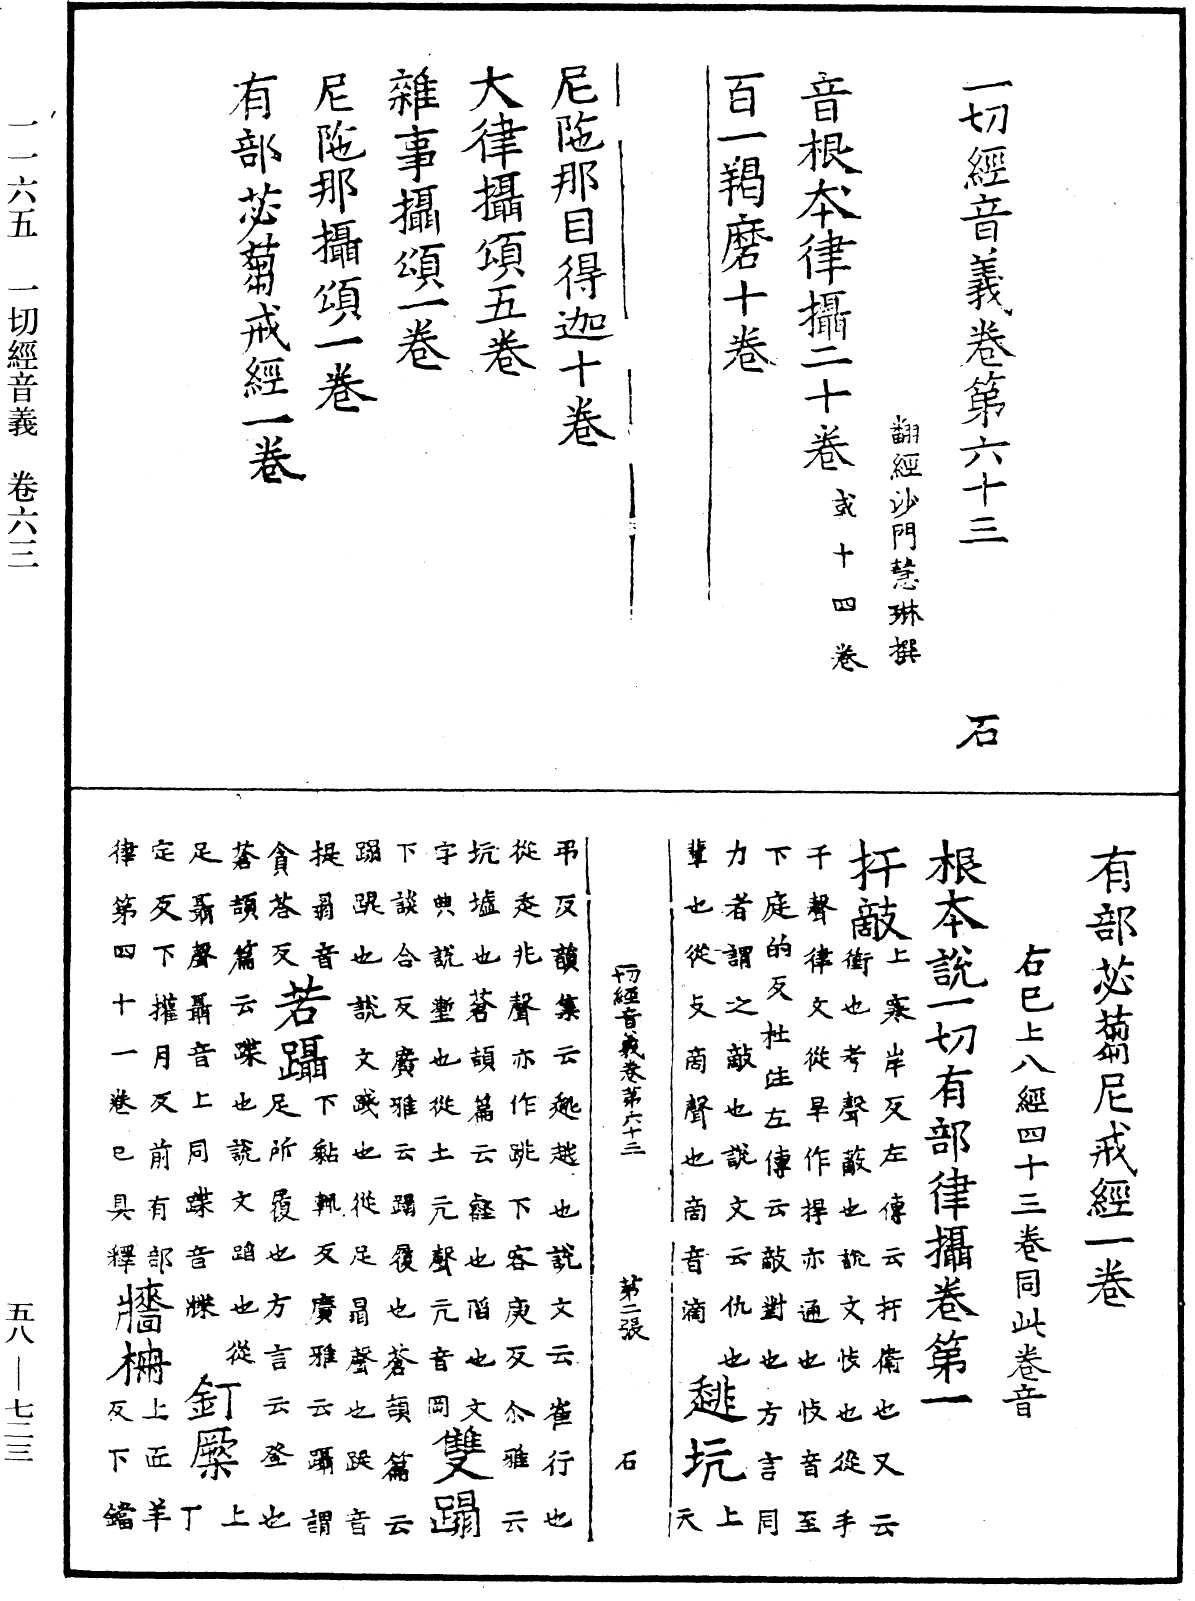 一切經音義卷第六十三　石
翻經沙門慧琳撰
音根本律攝二十卷或十四卷
百一羯磨十卷
尼陁那目得迦十卷
大律攝頌五卷
雜事攝頌一卷
尼陁那攝頌一卷
有部苾蒭戒經一卷
有部苾蒭尼戒經一卷
右已上八經四十三卷同此卷音
根本說一切有部律攝卷第一
扞敵上寒岸反左傳云扞衛也又云
衝也考聲蔽也說文忮也從手
干聲律文從旱作捍亦通也忮音至
下庭的反杜注左傳云敵對也方言同
力者謂之敵也說文云仇也
輩也從攴啇聲也啇音滴趒坑上天
一切經音義卷第六十三　第二張　石
弔反韻集云趒越也說文云雀行也
從走兆聲亦作跳下客庚反尒雅云
坑墟也蒼頡篇云壑也陷也文
字典說塹也從土亢聲亢音岡雙蹋
下談合反廣雅云蹋履也蒼頡篇云
蹋跽也說文踐也從足𦐇聲也踐音
提𦐇音若躡下黏輒反廣雅云躡謂
貪荅反足所履也方言云登也
蒼頡篇云蹀也說文蹈也從
足聶聲聶音上同蹀音牒釘橛上丁
定反下權月反前有部
律第四十一卷已具釋牆柵上匠羊反下鐺